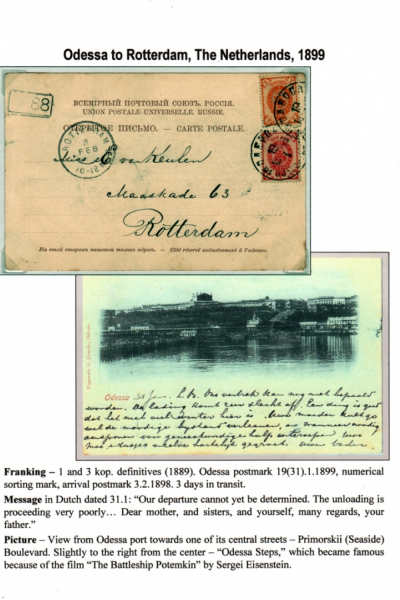 Odessa to Rotterdam, The Netherlands, 1899
88
ВСЕМІРНЫЙ ПОЧТОВЫЙ СОЮЗЪ. РОССІЯ.
UNION POSTALE UNIVERSELLE. RUSSIE.
ОТКРЫТОЕ ПИСЬМО. — CARTE POSTALE.
ROTTERDAM
FEB
10-12
van Keulen
Maaskade 63
Rotterdam
На этой сторонѣ пишется только адресъ. — Côté réservé exclusivement à l'adresse.
Odessa
31 Jan. Ons vertrek kan nog niet bepaald
worden. De lading komt zeer slecht af.
dat het niet
Franking – 1 and 3 kop. definitives (1889). Odessa postmark 19(31).1.1899, numerical
sorting mark, arrival postmark 3.2.1898. 3 days in transit.
Message in Dutch dated 31.1: “Our departure cannot yet be determined. The unloading is
proceeding very poorly… Dear mother, and sisters, and yourself, many regards, your
father.”
Picture – View from Odessa port towards one of its central streets – Primorskii (Seaside)
Boulevard. Slightly to the right from the center – “Odessa Steps,” which became famous
because of the film “The Battleship Potemkin” by Sergei Eisenstein.